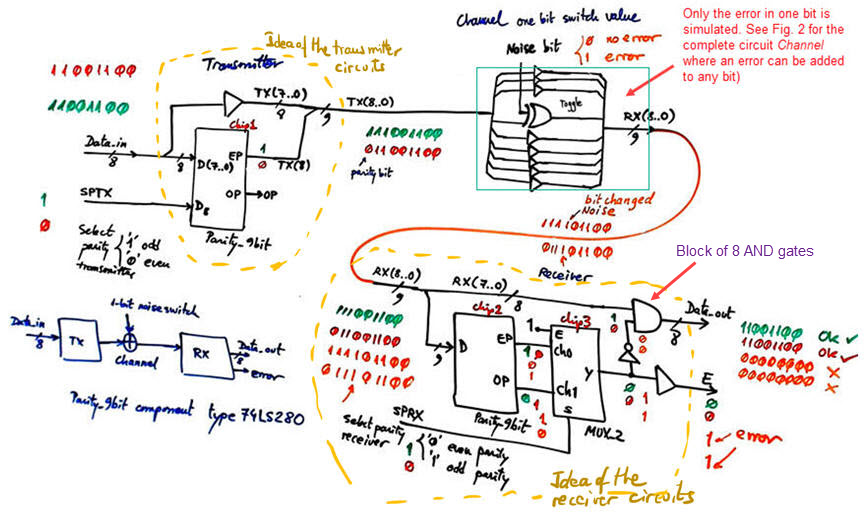 Channel one bit switch value
Noise bit
0 no error
1 error
Only the error in one bit is
simulated. See Fig. 2 for the
complete circuit Channel
where an error can be added
to any bit)
Idea of the transmitter
circuits
Transmitter
11001100
11001100
TX(7..0)
8
TX(8..0)
9
Toggle
RX(8..0)
9
chip1
Data_in
8
8
D(7..0)
EP
1
0
TX(8)
OP
OP
D8
Parity_9bit
111001100
011001100
parity bit
1
SPTX
0
Select
parity
transmitter
'1' odd
'0' even
bit changed
Noise
111101100
011101100
Receiver
Block of 8 AND gates
RX(8..0)
9
RX(7..0)
8
Data_out
8
chip2
chip3
9
D
EP
OP
Parity_9bit
1
E
Ch0
Ch1
Y
S
MUX_2
1
0
0
0
1
0
1
1
0
0
0
1
1
111001100
011001100
111101100
011101100
11001100 Ok ✓
11001100 OK ✓
00000000 X
00000000 X
E
0
0
1 error
1
SPRX
Select parity
receiver
1
0
'0' even parity
'1' odd parity
Idea of the
receiver circuits
1-bit noise switch
Data_in
8
TX
Channel
RX
Data_out
8
error
Parity_9bit component type 74LS280